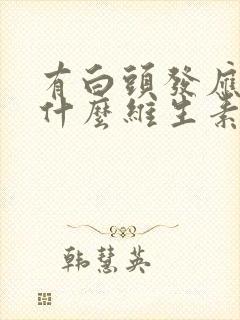 有白頭發應
什麼維生素
韩慧英